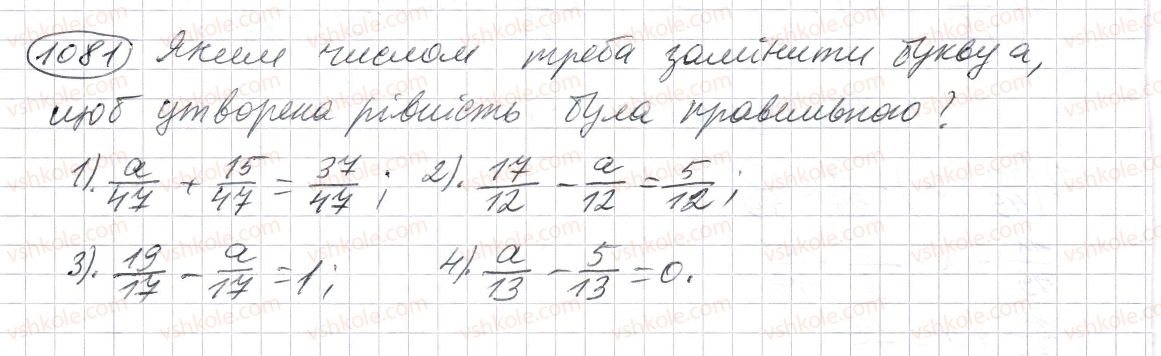 1081 Яким числом треба замінити букву a,
щоб утворена рівність була правильною?
1). a/47 + 15/47 = 37/47 ; 2). 17/12 - a/12 = 5/12 ;
3). 19/17 - a/17 = 1 ; 4). a/13 - 5/13 = 0.